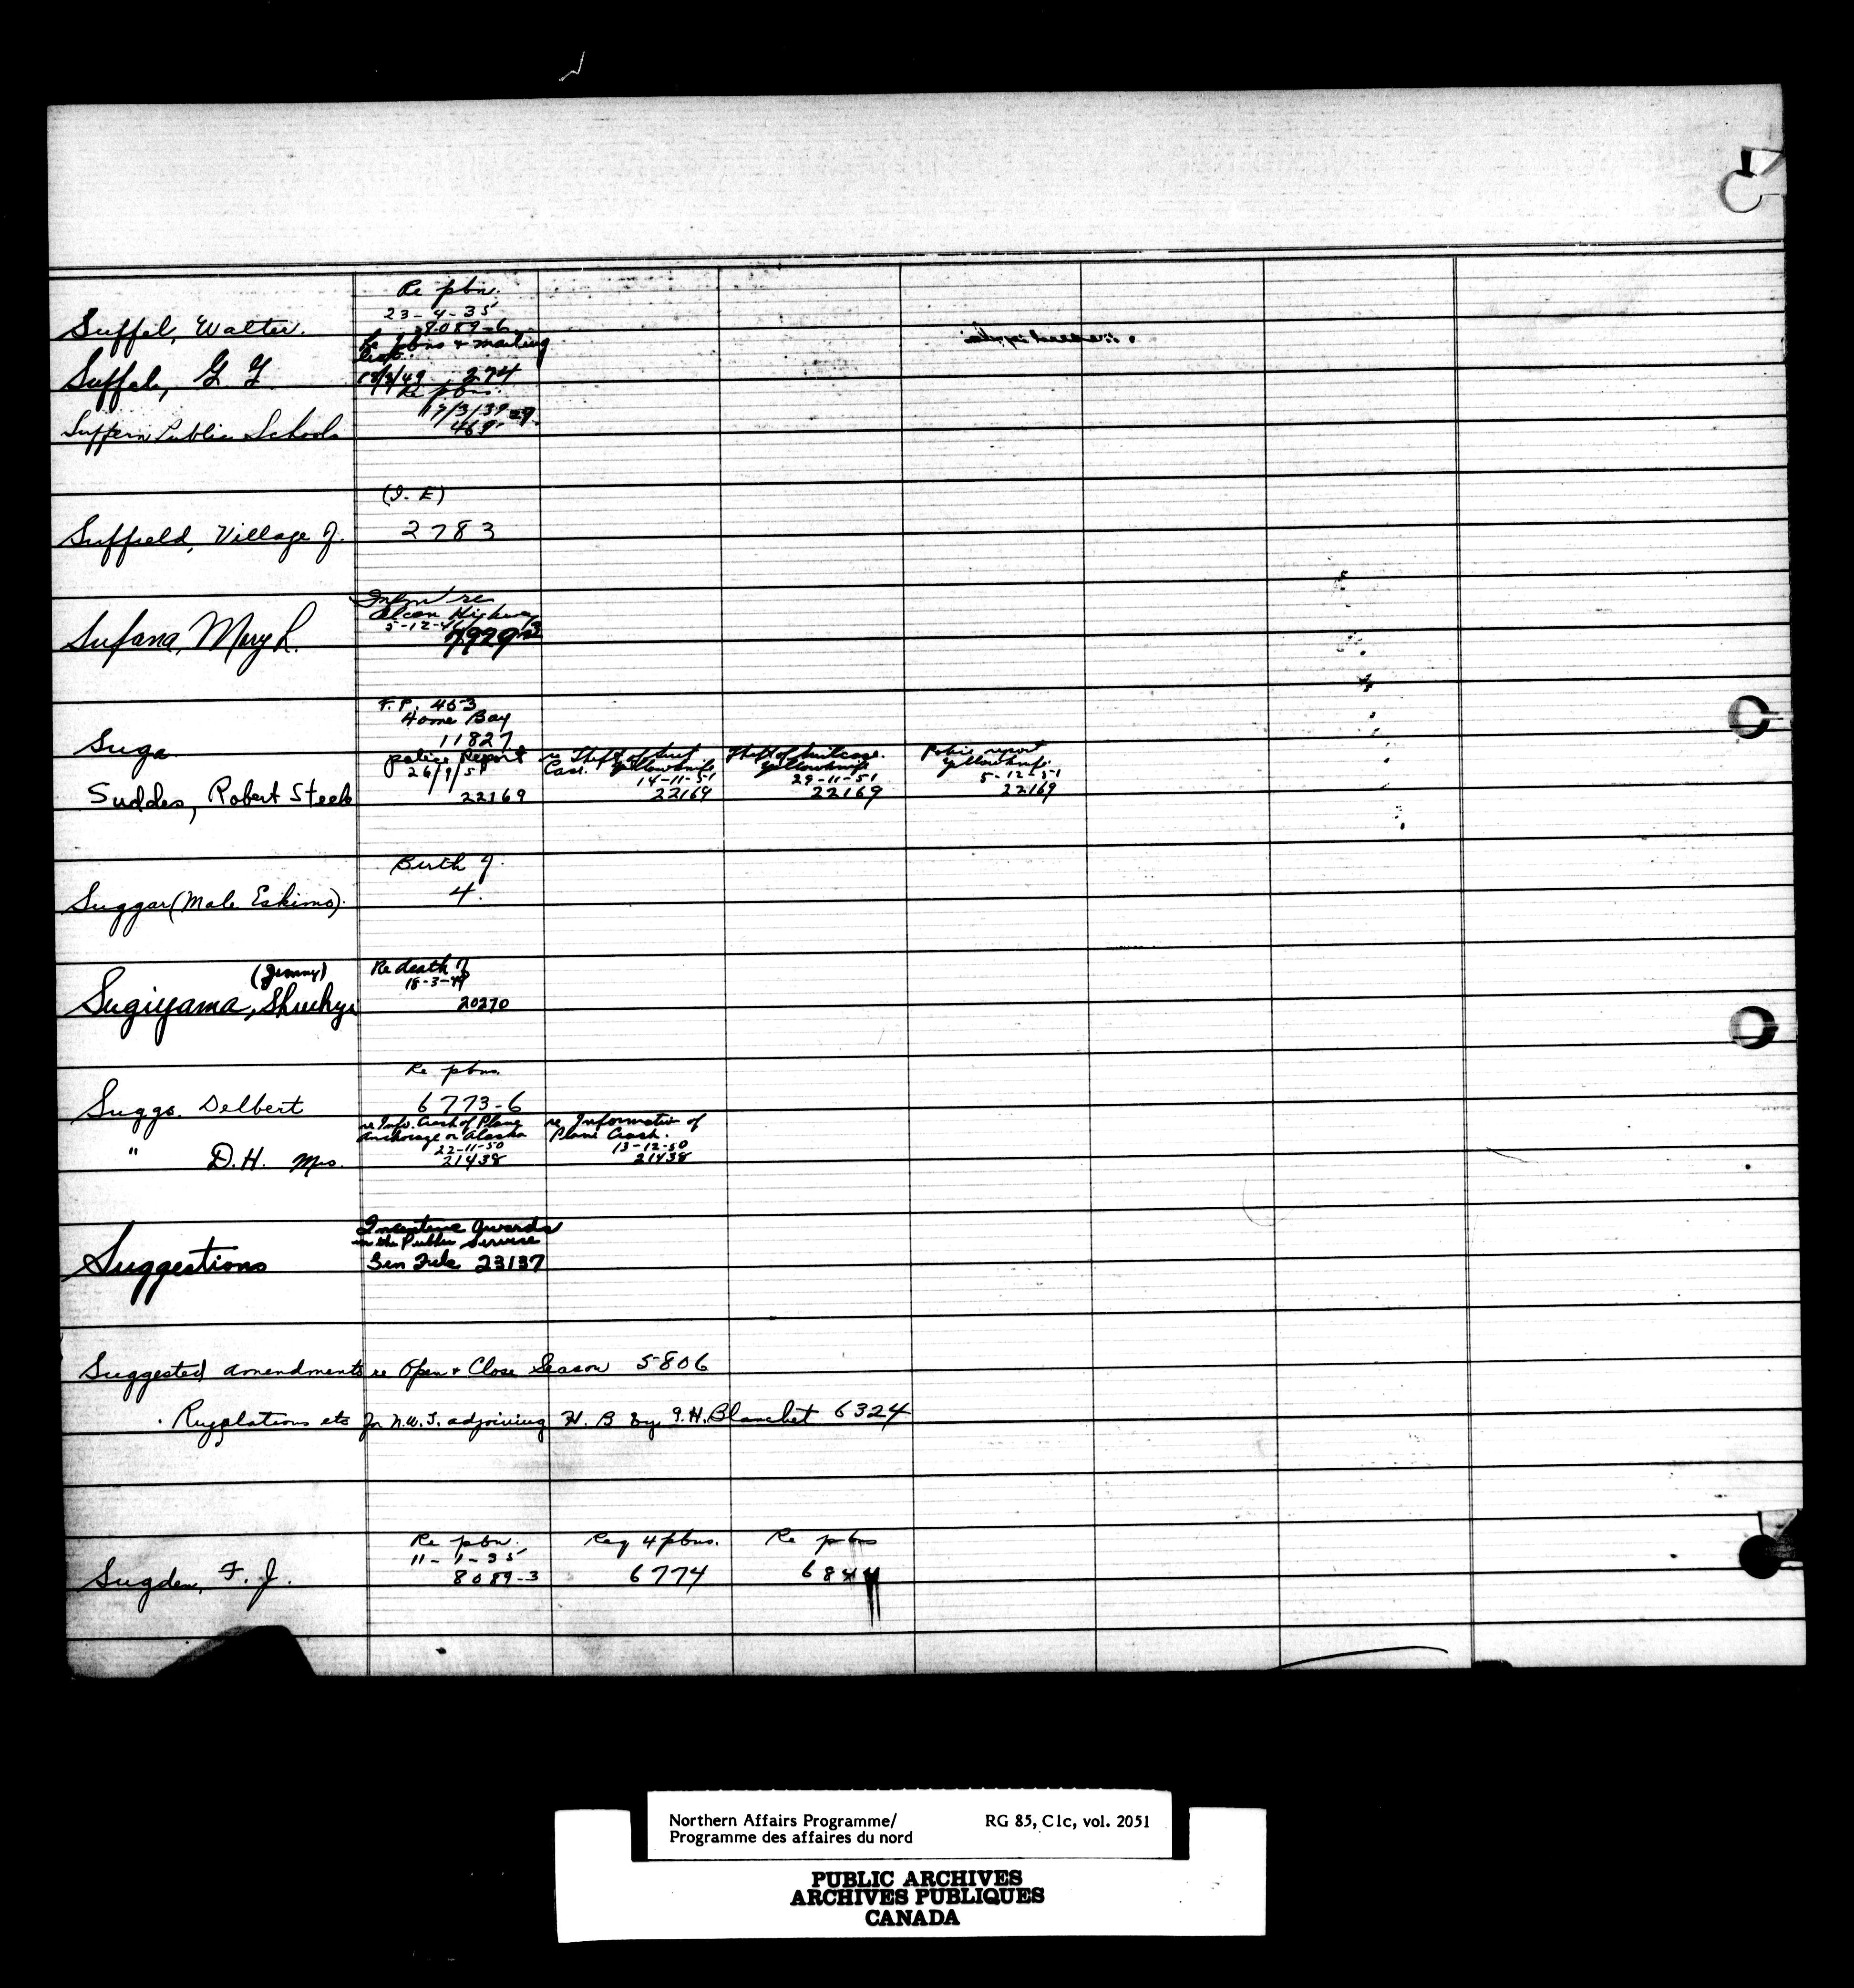 Re pbn.
23-4-35
Suffel, Walter. 8089-6
Re pbns & mailing
list.
Suffel, G. 274
Re pbns.
17/3/39
Suffern Public Schools 469
(I. E)
Suffield, Village of. 2783
Infm' re
Alcan Highway
5-12-46
Sufana, Mary L. 7929
F.P. 463
Home Bay
Suga 11827
police Report
26/9/51
re Theft of Suit
Case. Yellowknife
14-11-51
Theft of Suitcase.
Yellowknife
29-11-51
Police report
Yellowknife
5-12-51
Suddes, Robert Steele 22169 22169 22169 22169
Birth of.
Suggar (Male Eskimo). 4.
(Jimmy) Re death of
18-3-49
Sugiyama, 20270
Re pbns.
Suggs. Delbert 6773-6
re Info. Crash of Plane
Anchorage or Alaska
22-11-50
re Information of
Plane Crash.
13-12-50
" D.H. Mrs. 21438 21438
Incentive Awards
in the Public Service
Suggestions Gen File 23137
Suggested amendments re Open & Close Season 5806
Regulations etc for N.W.T. adjoining H. B by G.H. Blanchet 6324
Re pbn. Req 4 pbns. Re pbns
11-1-35
Sugden, F. J. 8089-3 6774 6844
Northern Affairs Programme/ RG 85, C1c, vol. 2051
Programme des affaires du nord
PUBLIC ARCHIVES
ARCHIVES PUBLIQUES
CANADA